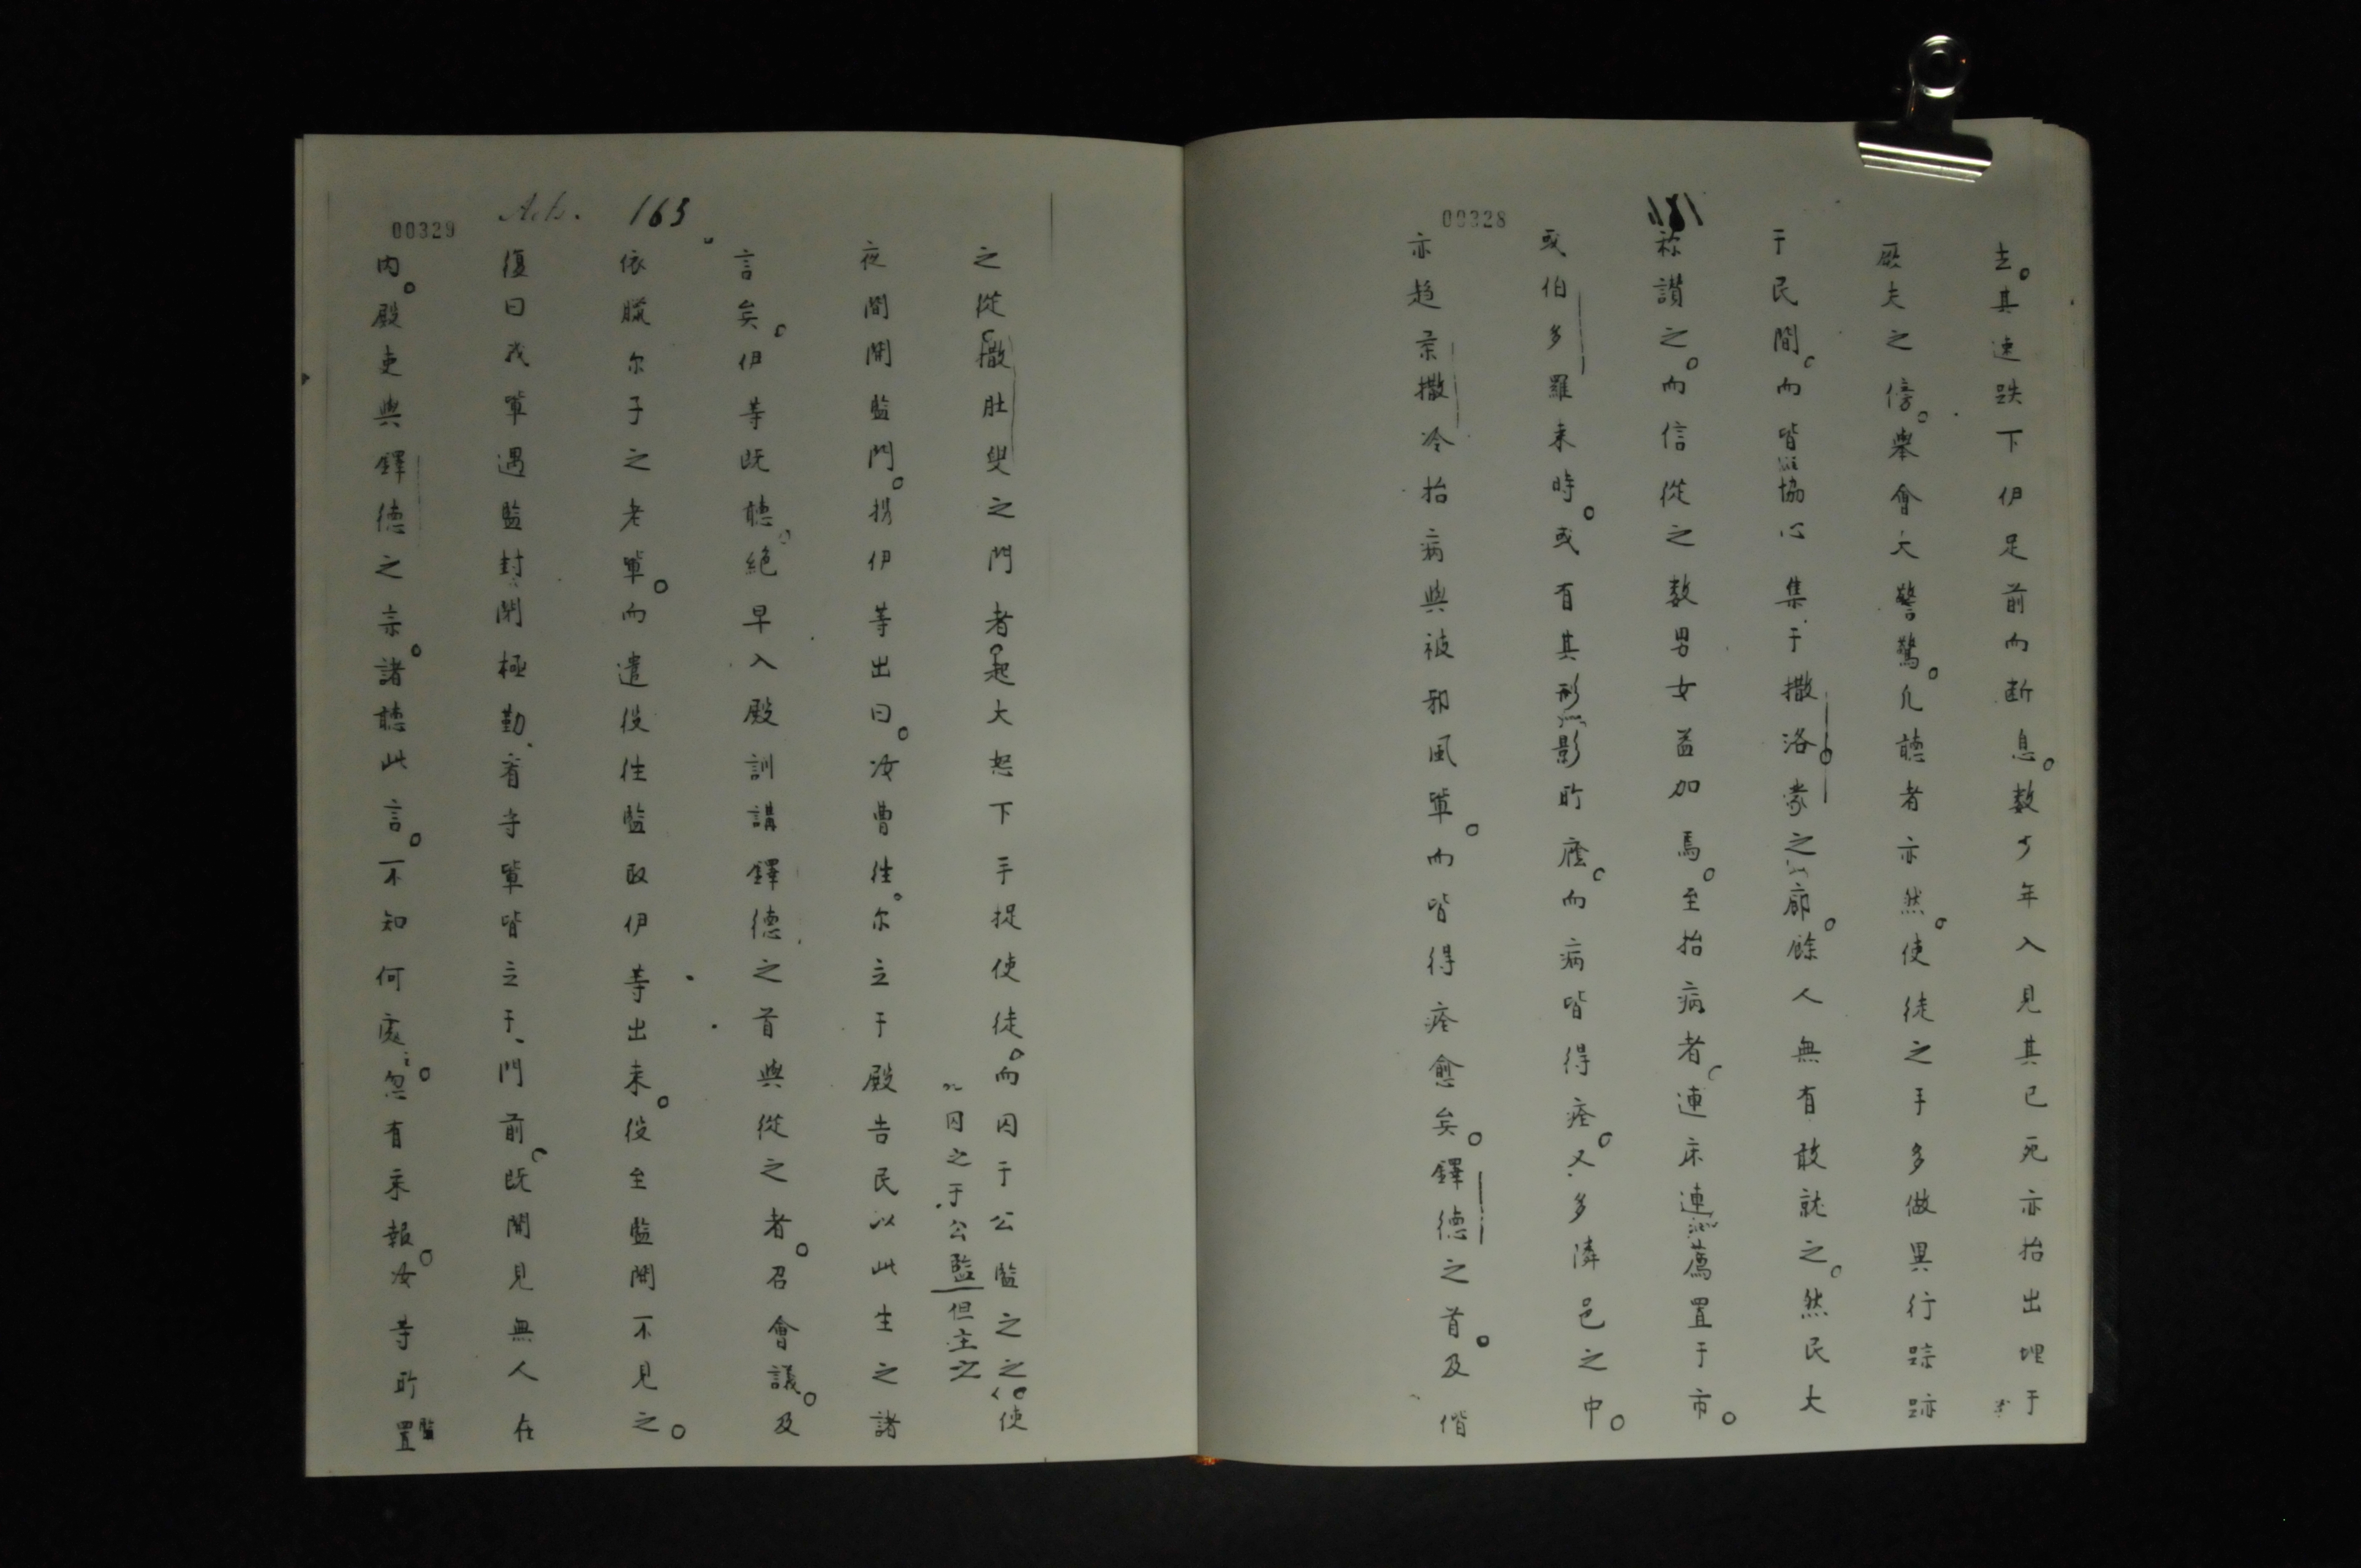 00328
去。其速跌下伊足前而断息。数少年入見其已死亦抬出埋于
厥夫之傍。舉會大警驚。凡聴者亦然。使徒之手多做異行踪跡
于民間。而皆協心集于撒洛蒙之廊。餘人無有敢就之。然民大
称讃之。而信從之数男女益加焉。至抬病者。連床連薦置于市。
或伯多羅来時。或有其形影所廕。而病皆得痊。又多隣邑之中。
亦趋柔撒冷抬病與被邪風軰。而皆得痊愈矣。鐸德之首。及偕
00329
Acts. 163
之從。撒肚叟之門者。起大怒下手捉使徒。而囚于公監之之。使
囚之于公監但主之
夜間開監門。携伊等出曰。汝曹往。尔立于殿告民以此生之諸
言矣。伊等既聴。絶早入殿訓講鐸德之首與從之者。召會議。及
依臘尔子之老軰。而遣役往監取伊等出来。役至監開不見之。
復曰我軰遇監封閉極勤、看守軰皆立于門前。既開見無人在
内。殿吏與鐸德之宗。諸聴此言。不知何處。忽有来報。汝等所置
監